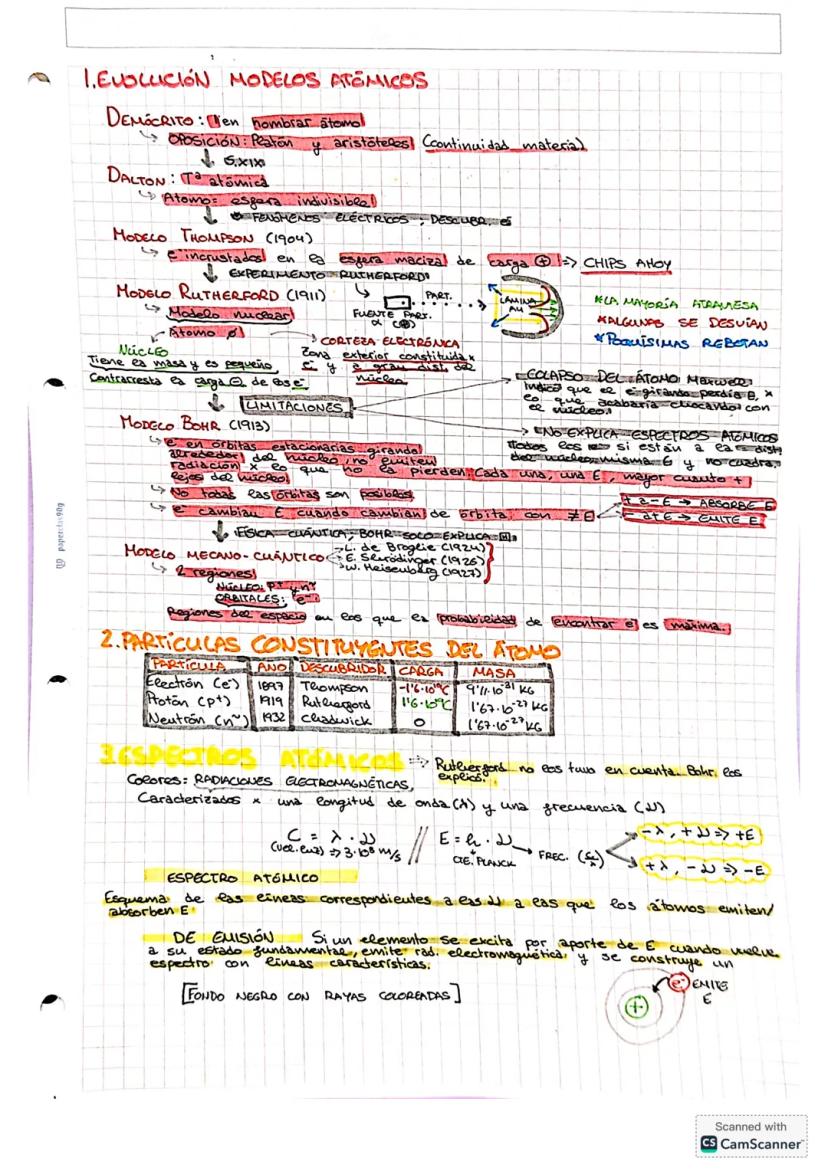 1. EVOLUCIÓN MODELOS ATÓMICOS
DEMÓCRITO: 1º en nombrar átomo
↳ OPOSICIÓN: Platón y aristóteles (continuidad materia)
↓ S.XIX
DALTON: Tª atómica
↳ Atomo= esfera indivisible
↓ FENÓMENOS ELÉCTRICOS, DESCUBR. e⁻
MODELO THOMPSON (1904)
↳ e⁻ incrustados en la esfera maciza de carga ⊕ => CHIPS AHOY
↓ EXPERIMENTO RUTHERFORD:
MODELO RUTHERFORD (1911)
↳ Modelo nuclear
FUENTE PART. α (⊕)
PART.
LÁMINA AU
*LA MAYORÍA ATRAVIESA
*ALGUNAS SE DESVÍAN
*POQUÍSIMAS REBOTAN
Átomo ∅
NÚCLEO
Tiene la masa y es pequeño
Contrarresta la carga ⊖ de los e⁻
CORTEZA ELECTRÓNICA
Zona exterior constituida x
e⁻ y a gran dist. del
núcleo
LIMITACIONES
COLAPSO DEL ÁTOMO: Maxwell
Indicó que el e⁻ girando perdía E, x
lo que acabaría chocando con
el núcleo.
NO EXPLICA ESPECTROS ATÓMICOS
todos los e⁻ si están a la = dist.
del núcleo misma E y no cuadra.
MODELO BOHR (1913)
↳ e⁻ en órbitas estacionarias girando
alrededor del núcleo, no emiten
radiación x lo que no la pierden. Cada una, una E, mayor cuanto +
lejos del núcleo
↳ No todas las órbitas son posibles
↳ e⁻ cambian E cuando cambian de órbita con ≠ E
+ a - E → ABSORBE E
- a + E → EMITE E
↓ FÍSICA CUÁNTICA, BOHR SOLO EXPLICA H
MODELO MECANO-CUÁNTICO
→ L. de Broglie (1924)
→ E. Schrödinger (1926)
→ W. Heisenberg (1927)
↳ 2 regiones
NÚCLEO: p⁺ y n
ORBITALES: e⁻
Regiones del espacio en los que la probabilidad de encontrar e⁻ es máxima.
2. PARTÍCULAS CONSTITUYENTES DEL ÁTOMO
PARTÍCULA AÑO DESCUBRIDOR CARGA MASA
Electrón (e⁻) 1897 Thompson -1'6·10⁻¹⁹C 9'11·10⁻³¹ KG
Protón (p⁺) 1919 Rutherford 1'6·10⁻¹⁹C 1'67·10⁻²⁷ KG
Neutrón (n) 1932 Chadwick 0 1'67·10⁻²⁷ KG
3. ESPECTROS ATÓMICOS => Rutherford no los tuvo en cuenta. Bohr los
explicó.
Colores= RADIACIONES ELECTROMAGNÉTICAS,
Caracterizados x una longitud de onda (λ) y una frecuencia (ν)
C = λ · ν // E = h · ν → FREC. (c/λ)
(VEL. LUZ) => 3·10⁸ m/s
CTE. PLANCK
-λ, +ν => +E
+λ, -ν => -E
ESPECTRO ATÓMICO
Esquema de las líneas correspondientes a las ν a las que los átomos emiten/
absorben E.
DE EMISIÓN Si un elemento se excita por aporte de E cuando vuelve
a su estado fundamental, emite rad. electromagnética, y se construye un
espectro con líneas características.
[FONDO NEGRO CON RAYAS COLOREADAS]
+
e⁻ EMITE
E
paperclas90g
Scanned with
CS CamScanner